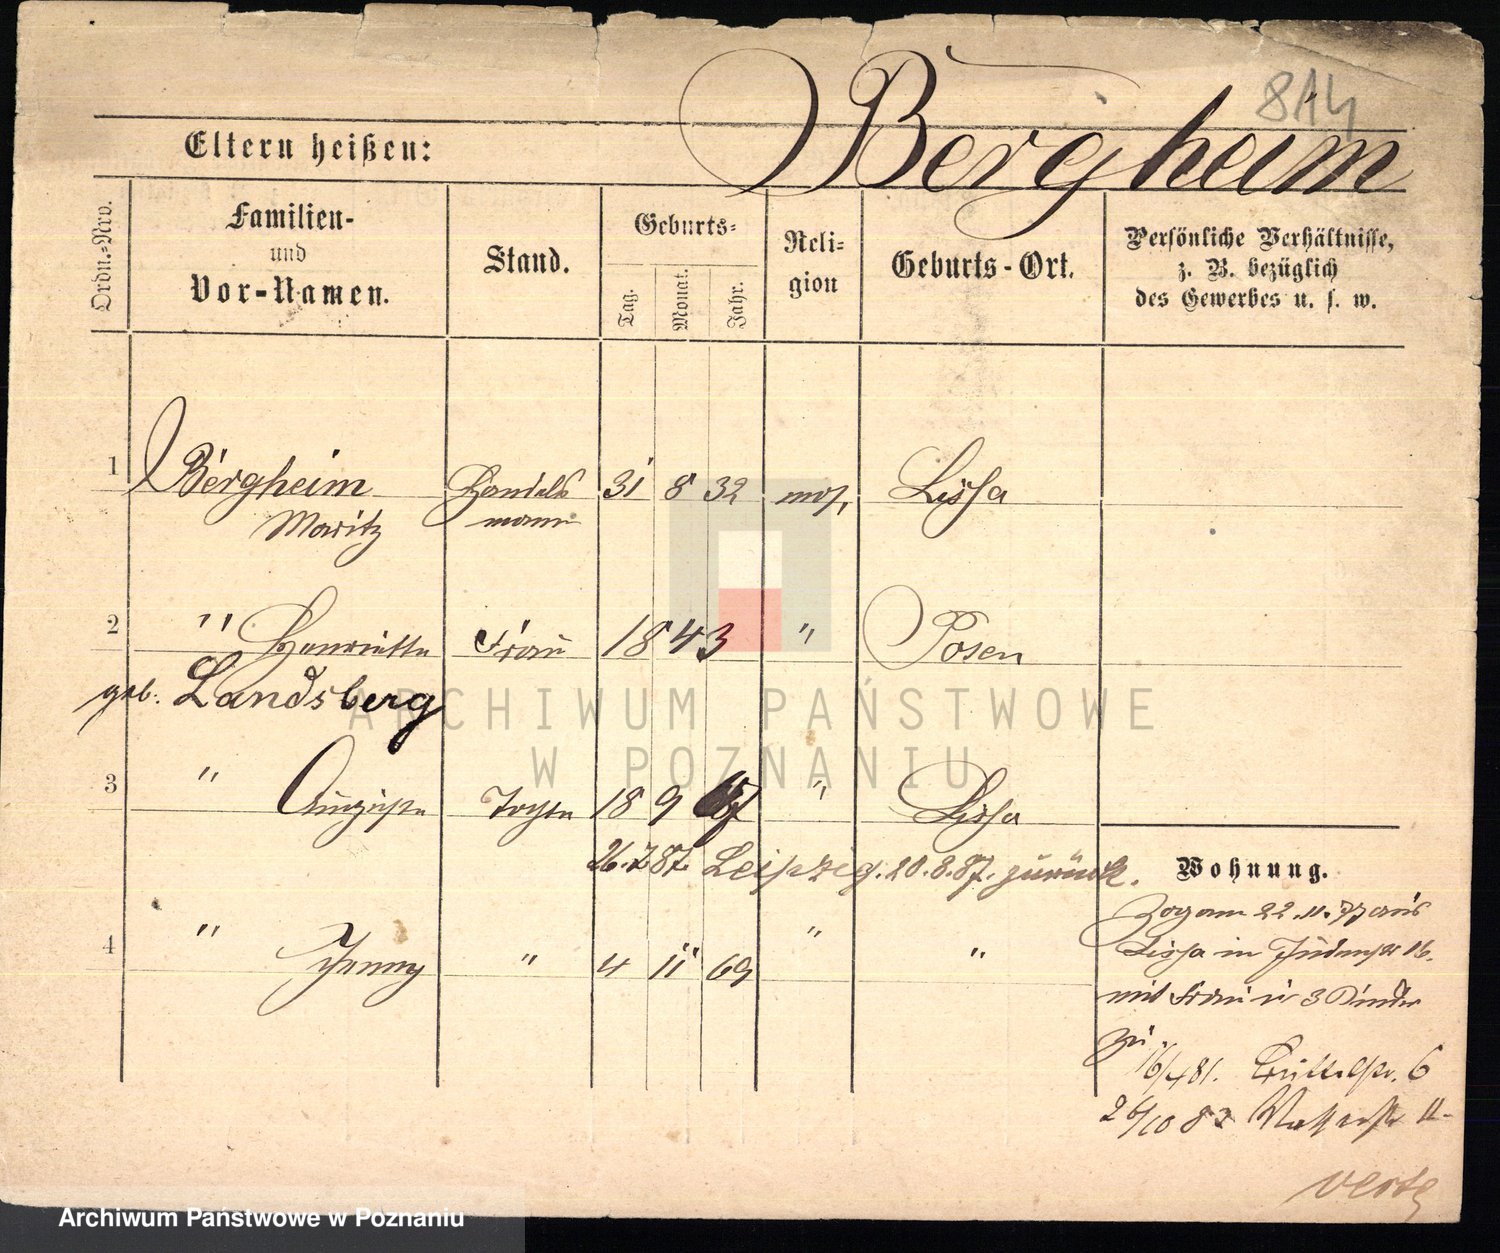 814
Bergheim
Eltern heißen:
Ordn.-Nro.
Familien-
und
Vor-Namen.
Stand.
Geburts-
Tag.
Monat.
Jahr.
Reli-
gion
Geburts-Ort.
Persönliche Verhältnisse,
z. B. bezüglich
des Gewerbes u. s. w.
1 Bergheim Handels 31 8 32 mos. Lissa
Moritz mann
2 " Henriette Frau 1843 " Posen
geb. Landsberg
3 " Auguste Tochter 18 9 67 " Lissa
26.7.87. Leipzig. 20.8.87. zurück.
4 " Jenny " 4 11 69 " "
Wohnung.
Zog am 22.11.77 aus
Lissa in Judenstr 16.
mit Frau u 3 Kinder
zu
16/4 81. 6
26/10 83 11.
vertz
ARCHIWUM PAŃSTWOWE
W POZNANIU
Archiwum Państwowe w Poznaniu